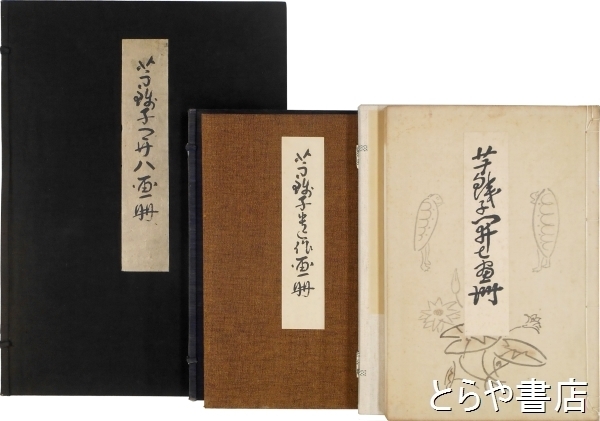 芋銭子開八画冊
芋銭子遺作画冊
芋銭子開七画冊
とらや書店